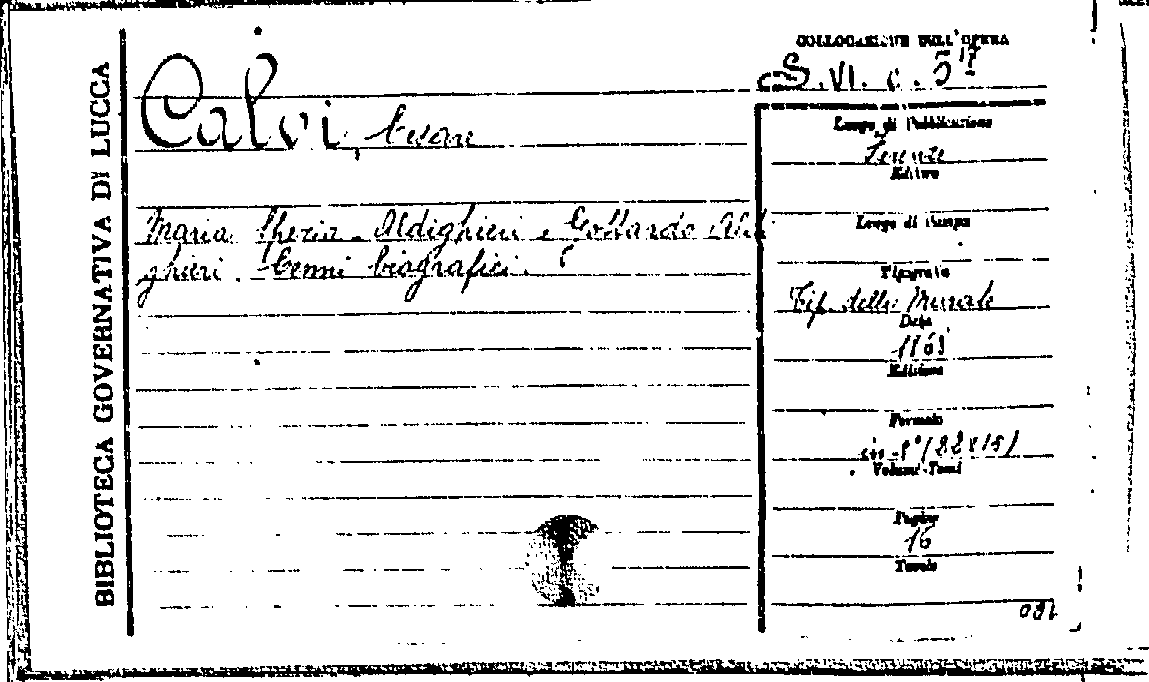 BIBLIOTECA GOVERNATIVA DI LUCCA
Calvi, Cesare
Maria Spezia-Aldighieri e Gottardo Aldi
ghieri. Cenni biografici.
COLLOCAZIONE DELL'OPERA
S. VI. c. 5
Luogo di Pubblicazione
Firenze
Editore
Luogo di stampa
Tipografia
Tip. delle Murate
Data
Edizione
Formato
in-8° (22x15)
Volumi-Tomi
Pagine
16
Tavole